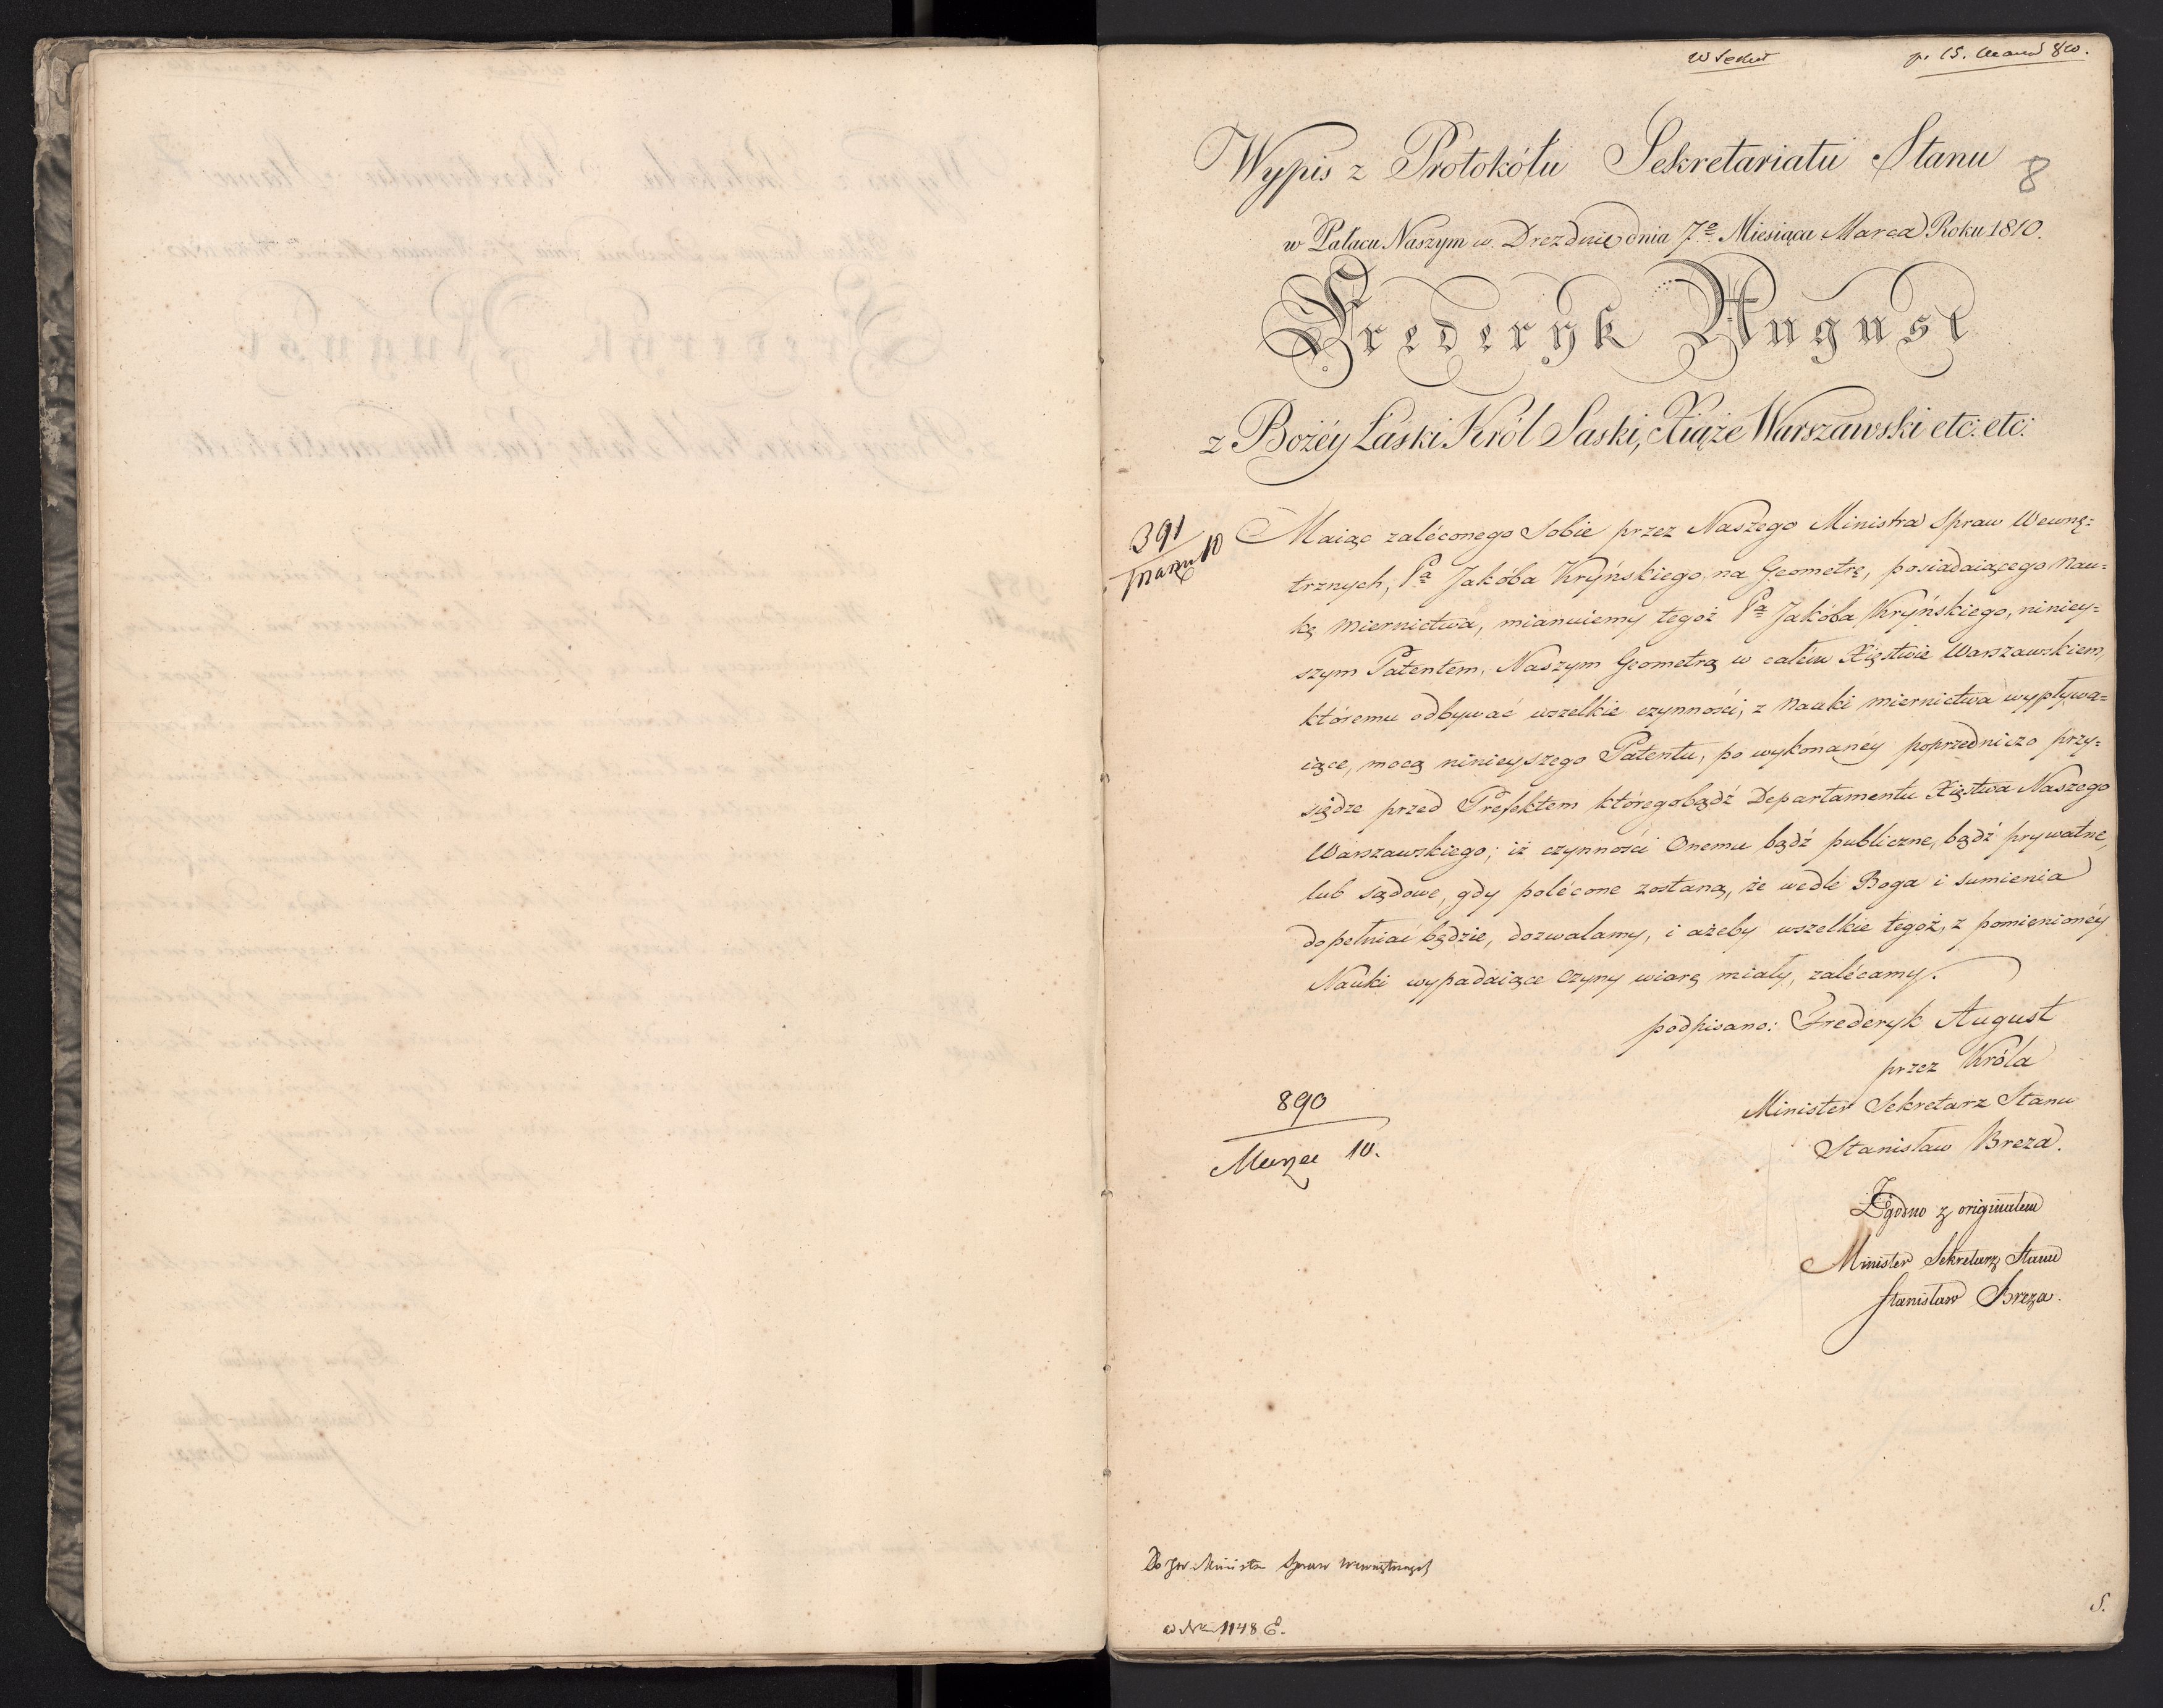 p. 15. Marca 810.
Wypis z Protokółu Sekretariatu Stanu
8
w Pałacu Naszym w Dreznie dnia 7e Miesiąca Marca Roku 1810.
Frederyk August
z Bożéy Łaski Król Saski, Xiąże Warszawski etc: etc:
391
Marzu 10
Maiąc zaléconego Sobie przez Naszego Ministra Spraw Wewnę=
trznych, Pa Jakóba Kryńskiego, na Geometrę, posiadaiącego Nau=
kę Miernictwa, mianuiemy tegoż Pa Jakóba Kryńskiego, niniey=
szym Patentem, Naszym Geometrą w całém Xięstwie Warszawskiem,
któremu odbywać wszelkie czynności, z Nauki miernictwa wypływa=
iące, mocą ninieyszego Patentu, po wykonanéy poprzedniczo przy=
siędze przed Prefektem któregobądź Departamentu Xięstwa Naszego
Warszawskiego; iż czynności Onemu bądź publiczne, bądź prywatne,
lub sądowe, gdy polécone zostaną, że wedle Boga i sumienia
dopełniać będzie, dozwalamy, i ażeby wszelkie tegoż, z pomienionéy
Nauki wypadaiące Czyny wiarę miały, zalécamy.
podpisano: Frederyk August
przez Króla
Minister Sekretarz Stanu
Stanisław Breza.
890
Marzec 10.
Zgodno z originałem
Minister Sekretarz Stanu
Stanisław Breza.
Do JW Ministra Spraw Wewnętrznych
ad Nrm 1148 E.
S.